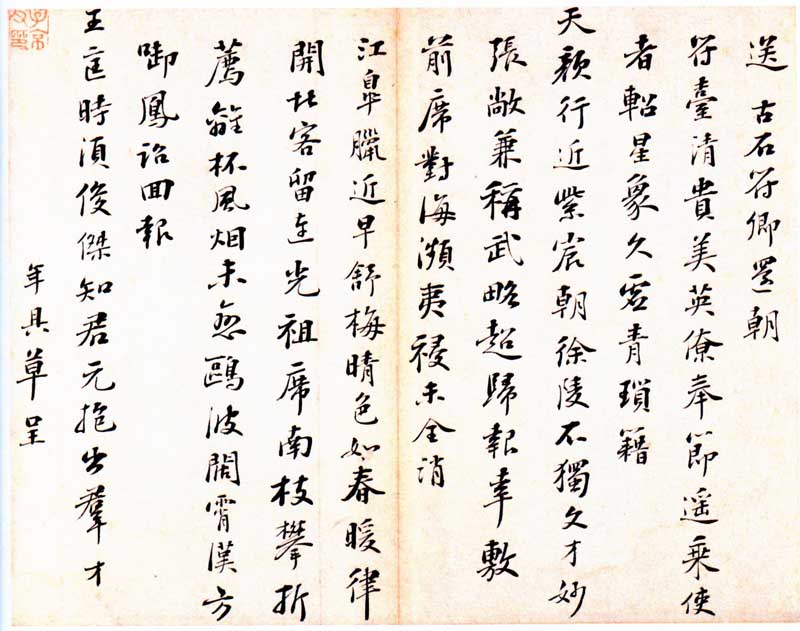 送 古石符卿還朝
符臺清貴美英僚奉節遥乗使
者軺星象久虚青瑣籍
天顔行近紫宸朝徐陵不獨文才妙
張敞兼稱武略超歸報幸敷
前席對海瀕夷祲未全消
江皐臘近早舒梅晴色如春暖律
開北客留連光祖席南枝攀折
薦離杯風烟未忽鷗波闊霄漢方
啣鳳詔回報
王匡時湏俊傑知君元抱出羣才
年具草呈